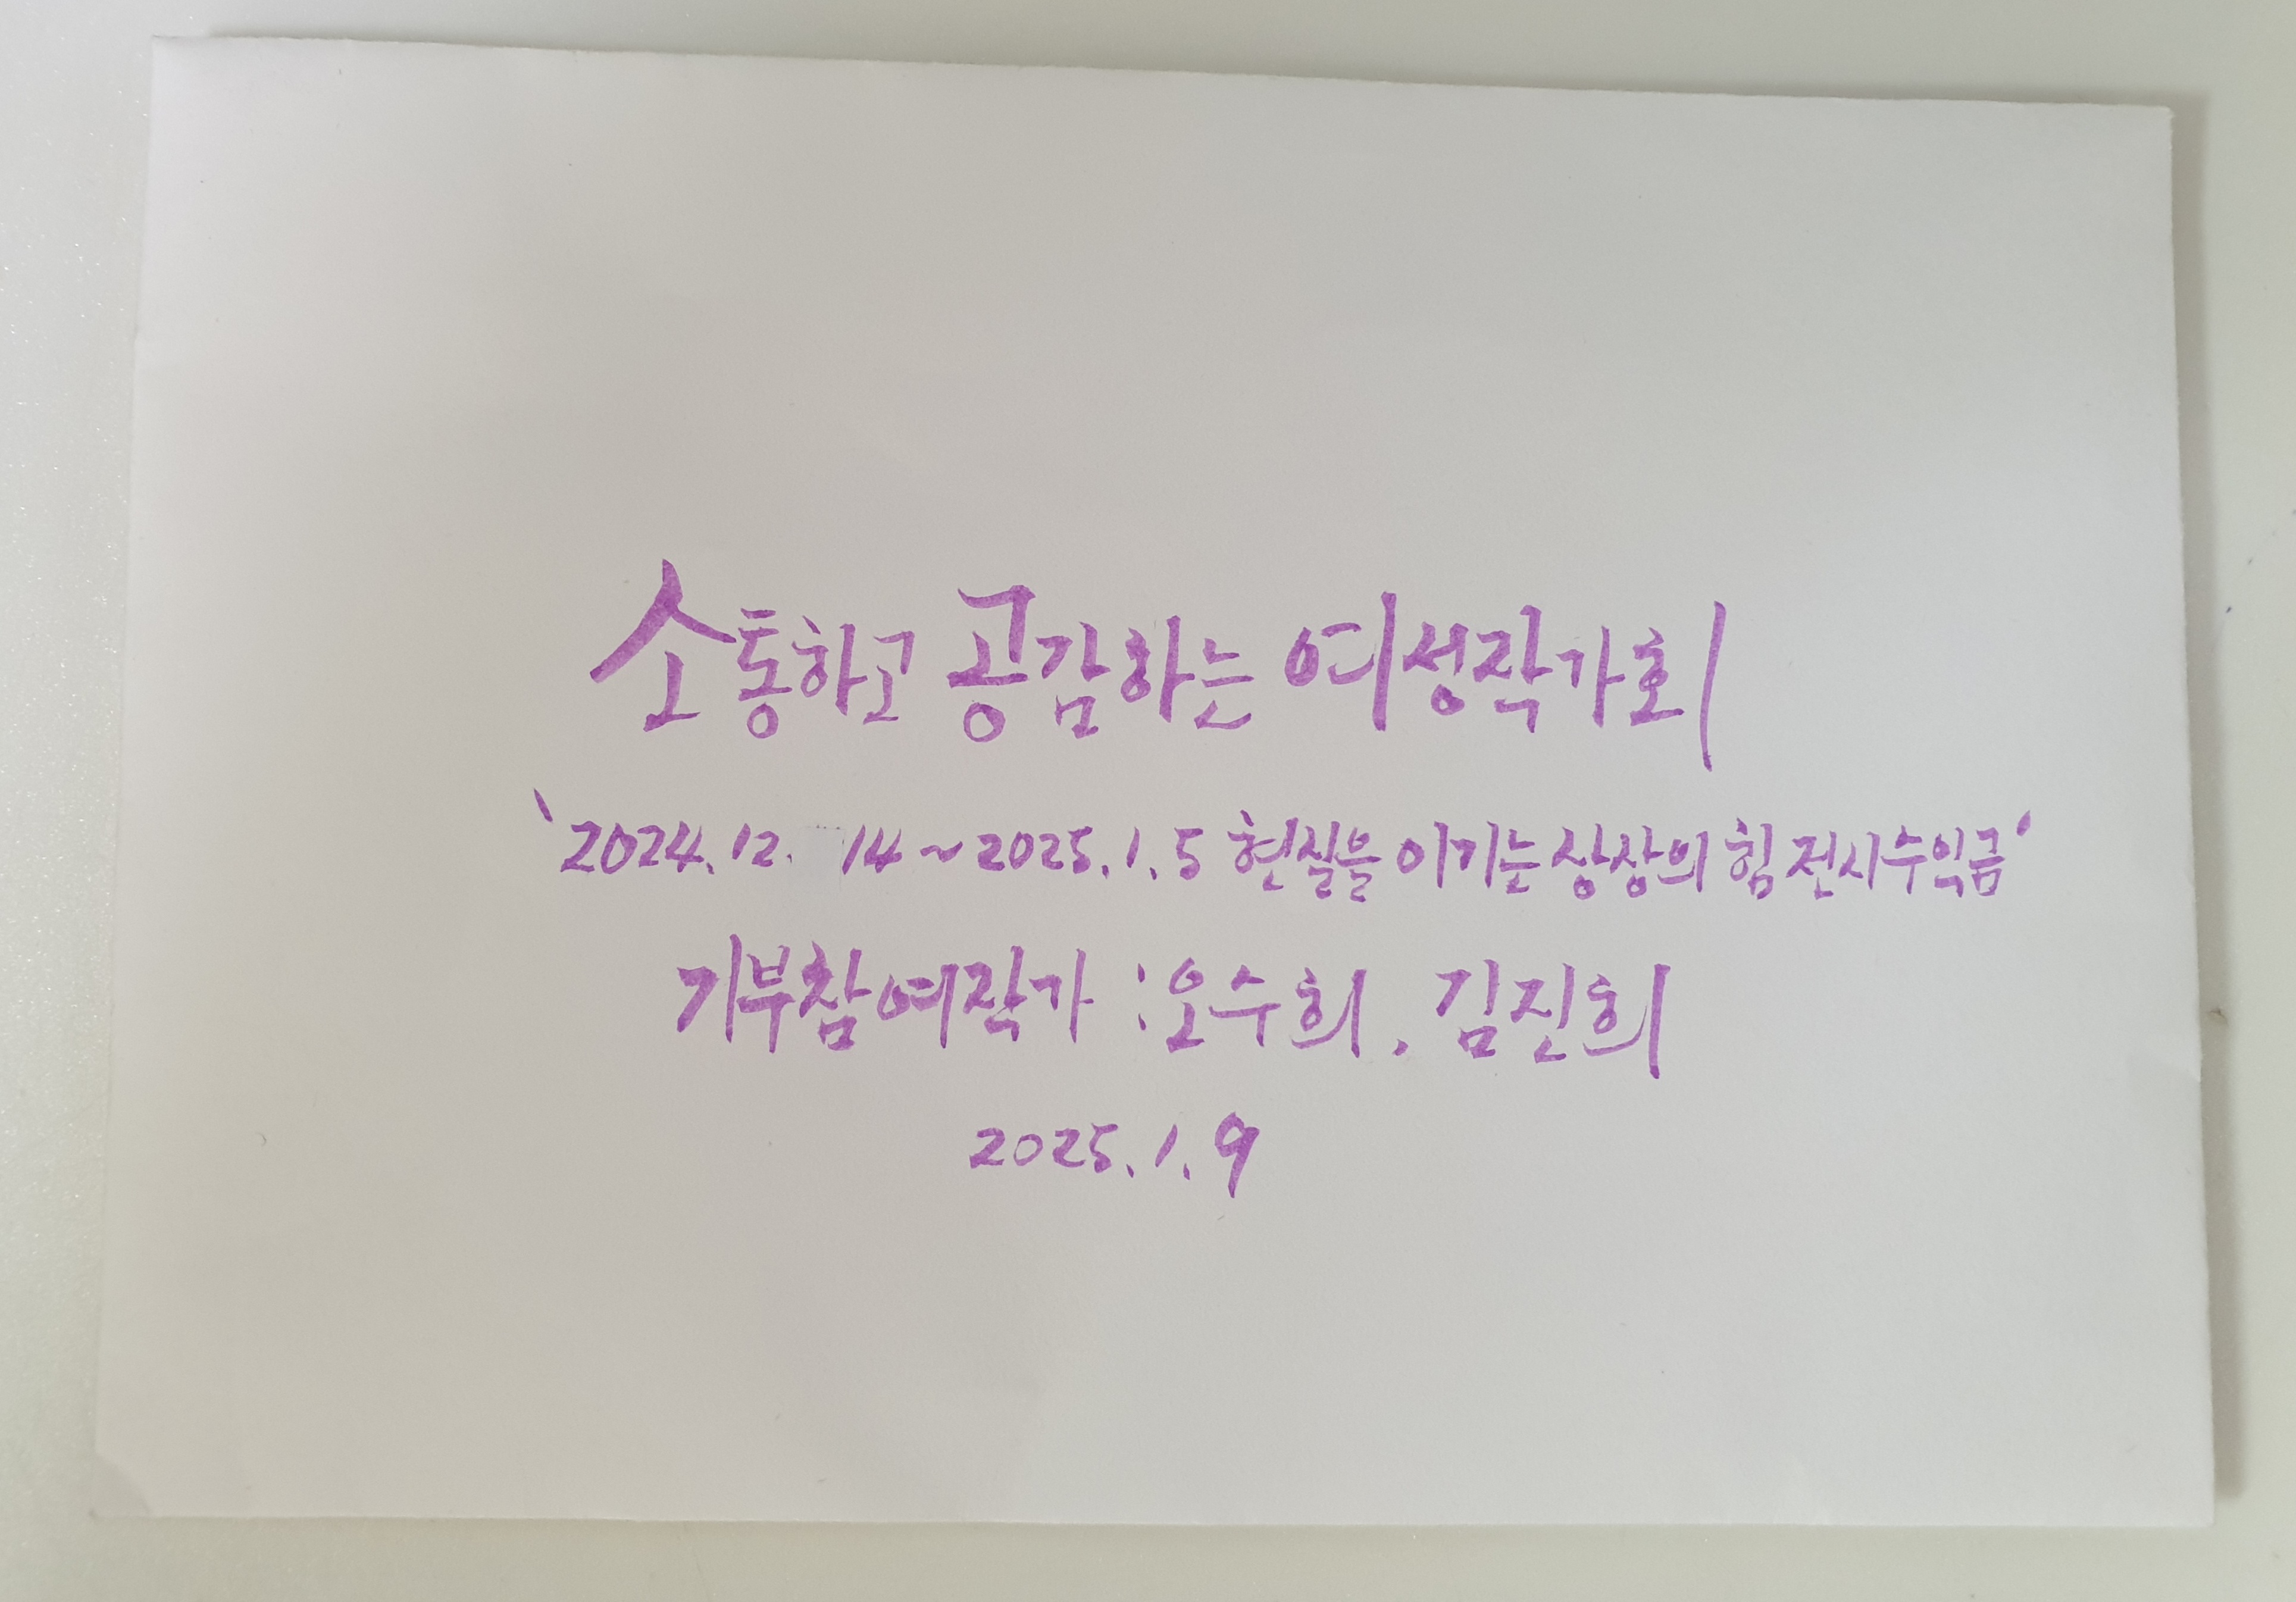 소통하고 공감하는 여성작가회
'2024.12. 14~2025.1.5 현실을 이기는 상상의 힘 전시수익금'
기부참여작가 : 오수희, 김진희
2025.1.9